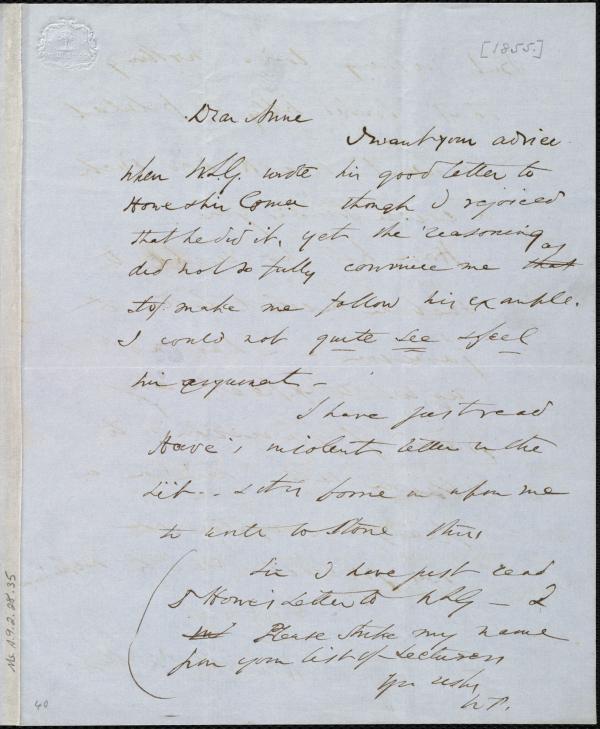 [1855.]
Dear Anne
I want your advice
When WLG. wrote his good letter to
Howe though I rejoiced
that he did it, yet the reasoning
did not so fully convince me that as
to make me follow his example.
I could not quite see & feel
his argument –
I have just read
Howe's insolent letter in the
Lib.. & it is borne in upon me
to write to Stone thus
Sir I have just read
S Howe's Letter to WLG –
Please strike my name
from your list of Lecturers
Yrs
W.P.
Ms. A.9.2.28.35
40